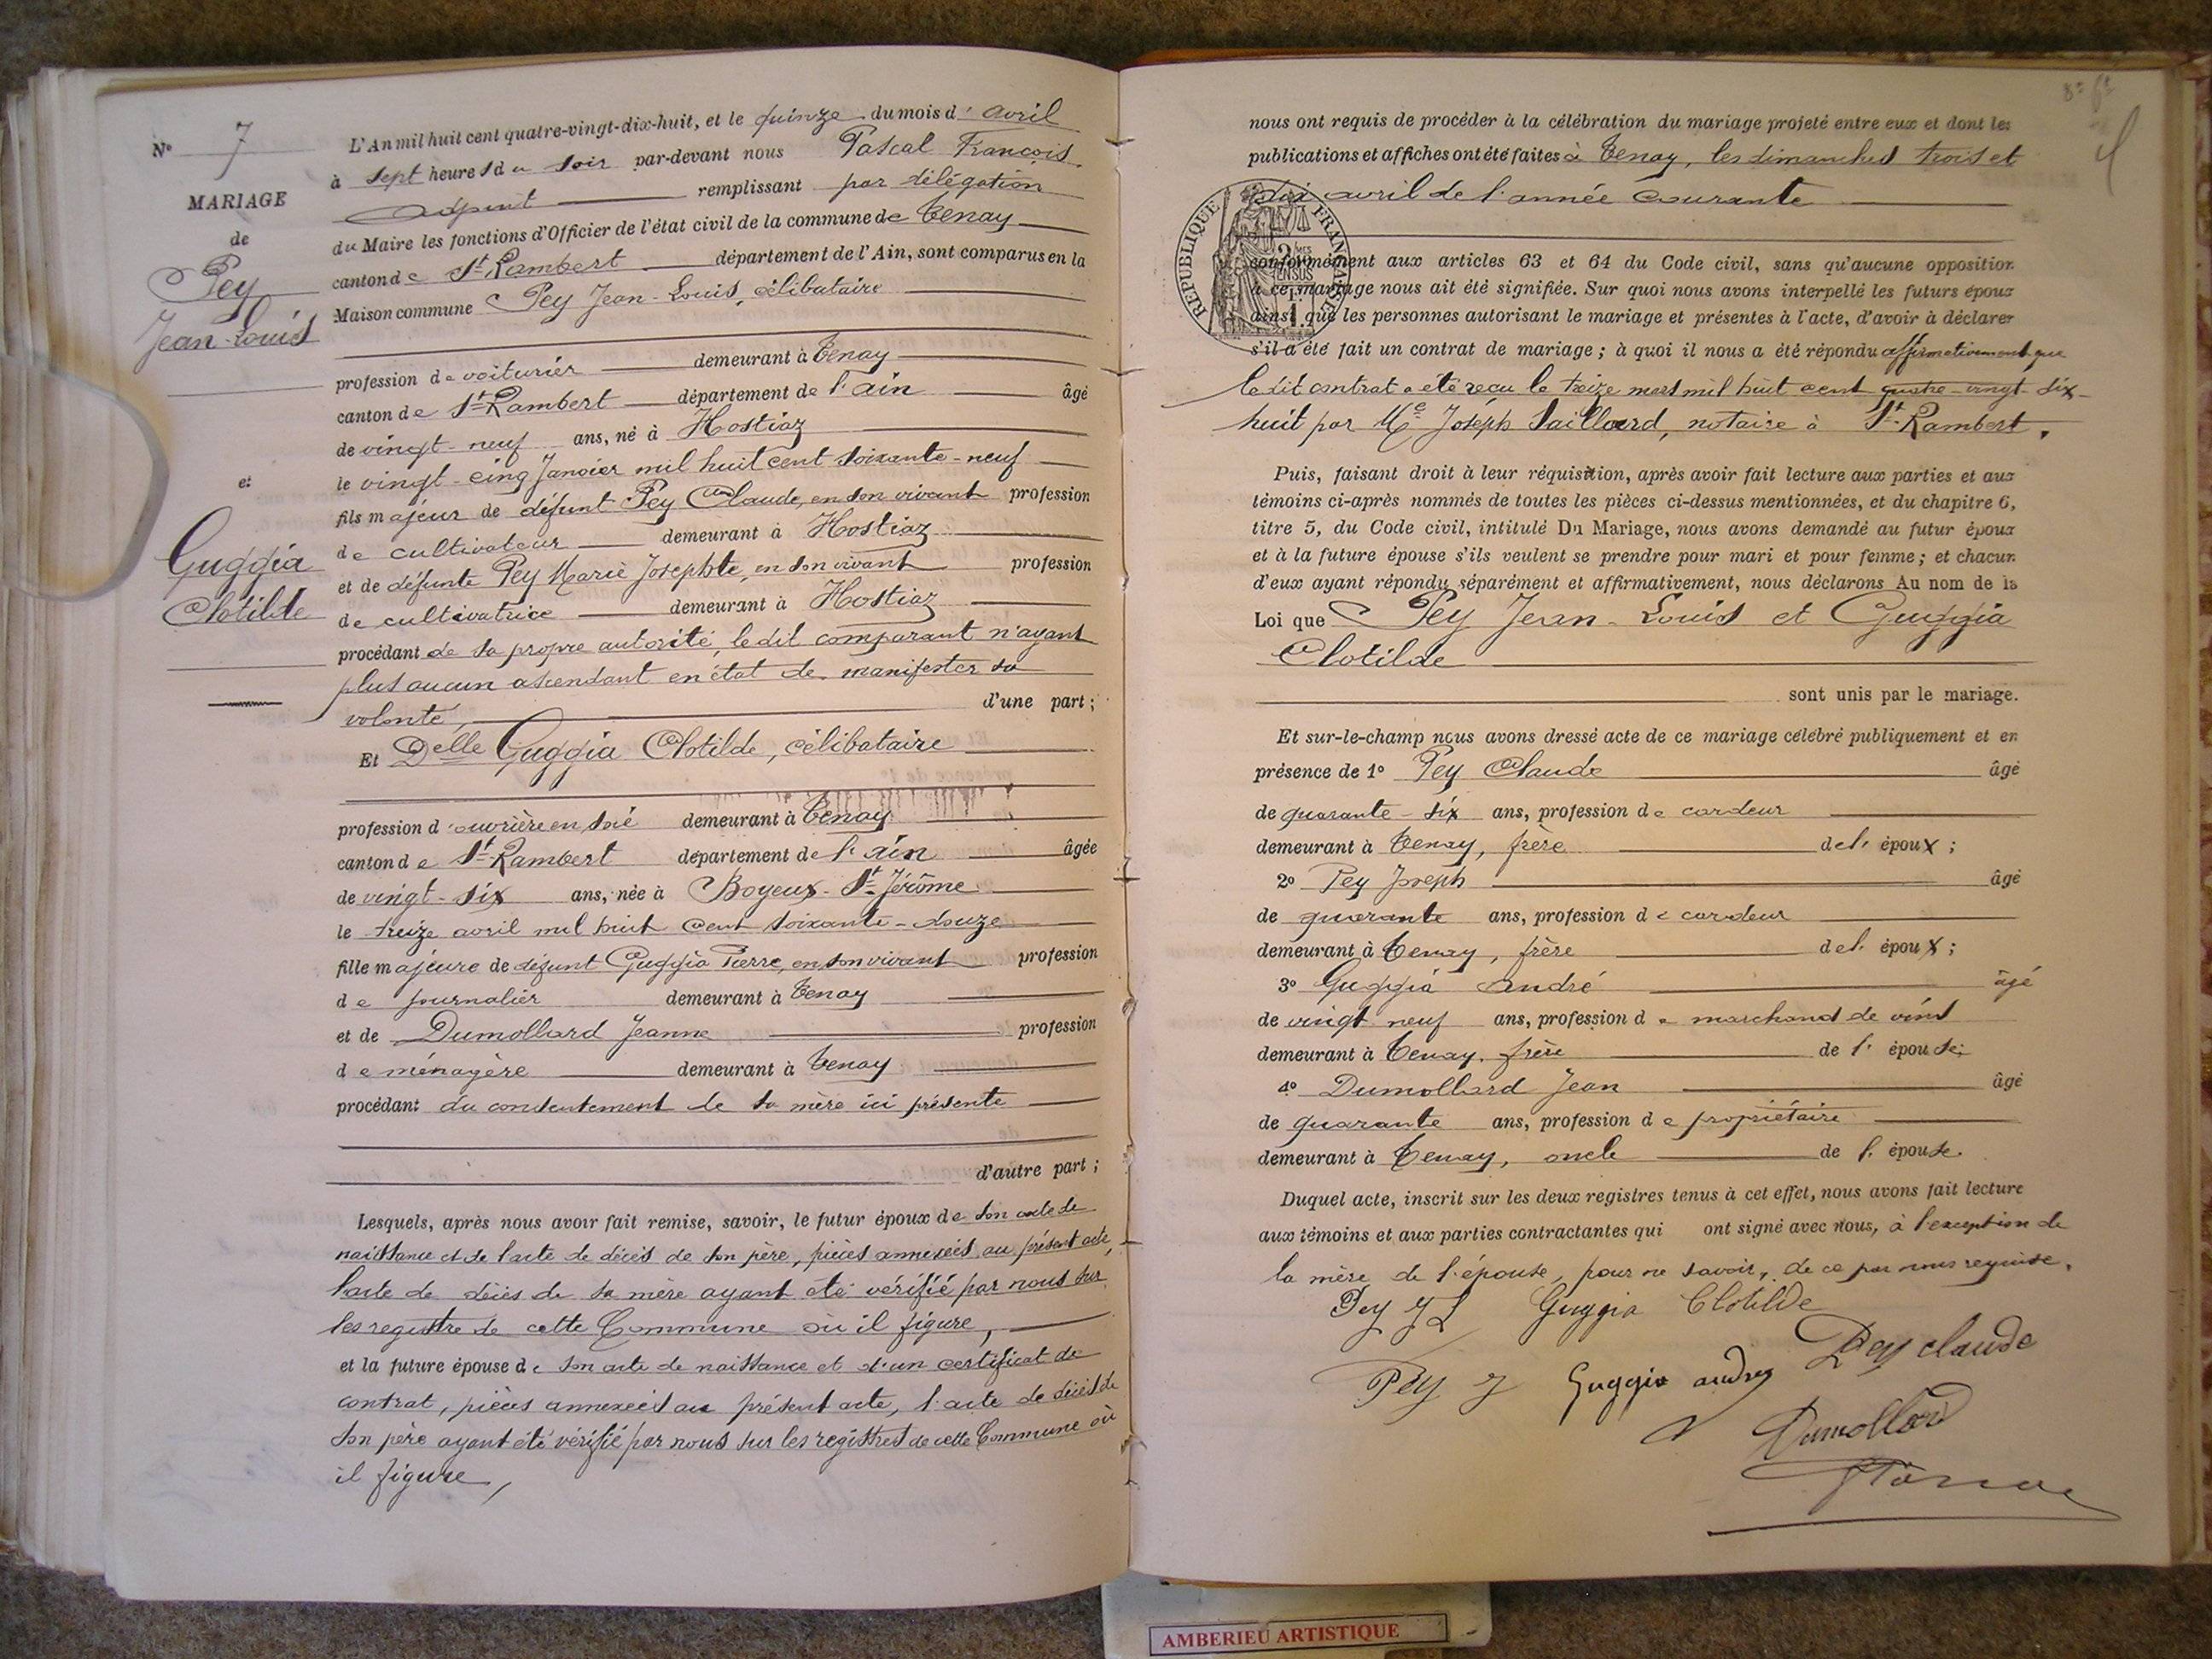 N° 7
MARIAGE
de
Pey
Jean-Louis
et
Guggia
Clotilde
L'An mil huit cent quatre-vingt-dix-huit, et le quinze du mois d'avril
à sept heures du soir par-devant nous Pascal François,
adjoint remplissant par délégation
du Maire les fonctions d'Officier de l'état civil de la commune de Tenay
canton de St-Rambert département de l'Ain, sont comparus en la
Maison commune Pey Jean-Louis, célibataire
profession de voiturier demeurant à Tenay
canton de St-Rambert département de l'ain âgé
de vingt-neuf ans, né à Hostiaz
le vingt-cinq Janvier mil huit cent soixante-neuf
fils majeur de défunt Pey Claude, en son vivant profession
de cultivateur demeurant à Hostiaz
et de défunte Pey Marie Josephte, en son vivant profession
de cultivatrice demeurant à Hostiaz
procédant de sa propre autorité, le dit comparant n'ayant
plus aucun ascendant en état de manifester sa
volonté, d'une part;
Et Delle Guggia Clotilde, célibataire
profession d'ouvrière en soie demeurant à Tenay
canton de St-Rambert département de l'ain âgée
de vingt-six ans, née à Boyeux-St-Jérôme
le treize avril mil huit cent soixante-douze
fille majeure de défunt Guggia Pierre, en son vivant profession
de journalier demeurant à Tenay
et de Dumollard Jeanne profession
de ménagère demeurant à Tenay
procédant du consentement de sa mère ici présente
d'autre part;
Lesquels, après nous avoir fait remise, savoir, le futur époux de son acte de
naissance et de l'acte de décès de son père, pièces annexées au présent acte,
l'acte de décès de sa mère ayant été vérifié par nous sur
les registre de cette Commune où il figure,
et la future épouse de son acte de naissance et d'un certificat de
contrat, pièces annexées au présent acte, l'acte de décès de
son père ayant été vérifié par nous sur les registres de cette Commune où
il figure,
nous ont requis de procéder à la célébration du mariage projeté entre eux et dont les
publications et affiches ont été faites à Tenay, les dimanches trois et
dix avril de l'année courante
REPUBLIQUE FRANÇAISE
conformément aux articles 63 et 64 du Code civil, sans qu'aucune opposition
à ce mariage nous ait été signifiée. Sur quoi nous avons interpellé les futurs époux
ainsi que les personnes autorisant le mariage et présentes à l'acte, d'avoir à déclarer
s'il a été fait un contrat de mariage; à quoi il nous a été répondu affirmativement que
le dit contrat a été reçu le treize mars mil huit cent quatre-vingt-dix-
huit par Me Joseph Saillard, notaire à St-Rambert.
Puis, faisant droit à leur réquisition, après avoir fait lecture aux parties et aux
témoins ci-après nommés de toutes les pièces ci-dessus mentionnées, et du chapitre 6,
titre 5, du Code civil, intitulé Du Mariage, nous avons demandé au futur époux
et à la future épouse s'ils veulent se prendre pour mari et pour femme; et chacun
d'eux ayant répondu séparément et affirmativement, nous déclarons Au nom de la
Loi que Pey Jean-Louis et Guggia
Clotilde
sont unis par le mariage.
Et sur-le-champ nous avons dressé acte de ce mariage célébré publiquement et en
présence de 1° Pey Claude âgé
de quarante-six ans, profession de cardeur
demeurant à Tenay, frère de l'époux;
2° Pey Joseph âgé
de quarante ans, profession de cardeur
demeurant à Tenay, frère de l'époux;
3° Guggia André âgé
de vingt neuf ans, profession de marchand de vins
demeurant à Tenay, frère de l'épouse;
4° Dumollard Jean âgé
de quarante ans, profession de propriétaire
demeurant à Tenay, oncle de l'épouse.
Duquel acte, inscrit sur les deux registres tenus à cet effet, nous avons fait lecture
aux témoins et aux parties contractantes qui ont signé avec nous, à l'exception de
la mère de l'épouse, pour ne savoir, de ce par nous requise.
Pey J L Guggia Clotilde
Pey claude
Pey J Guggia andré
Dumollard
AMBERIEU ARTISTIQUE